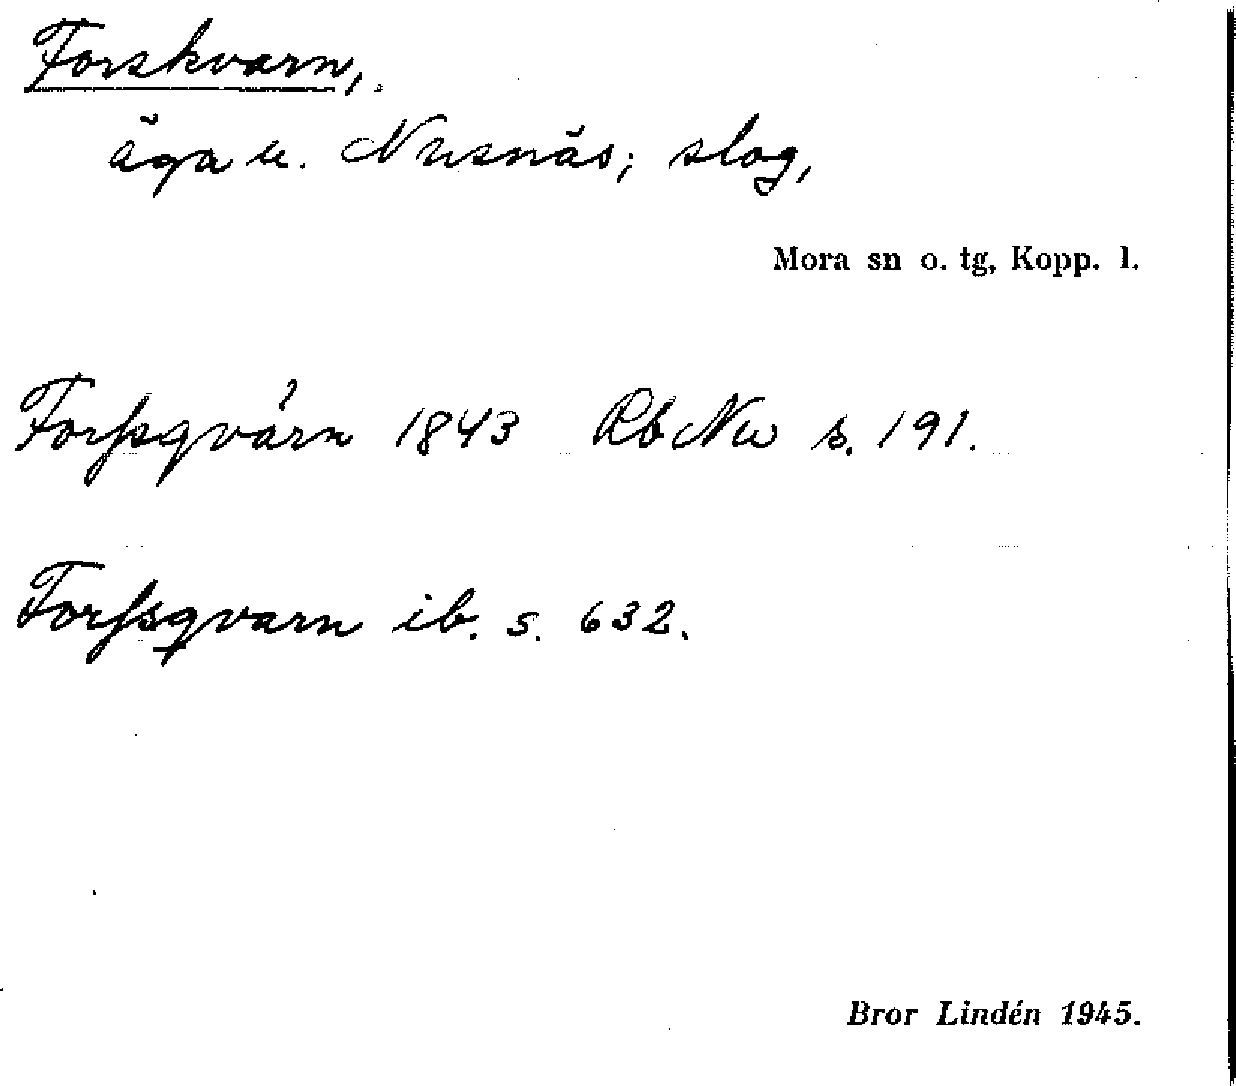 Forskvarn,
äga u. Nusnäs; slog,
Mora sn o. tg, Kopp. l.
Forssqvarn 1843 Rb Nu s. 191.
Forssqvarn ib. s. 632.
Bror Lindén 1945.